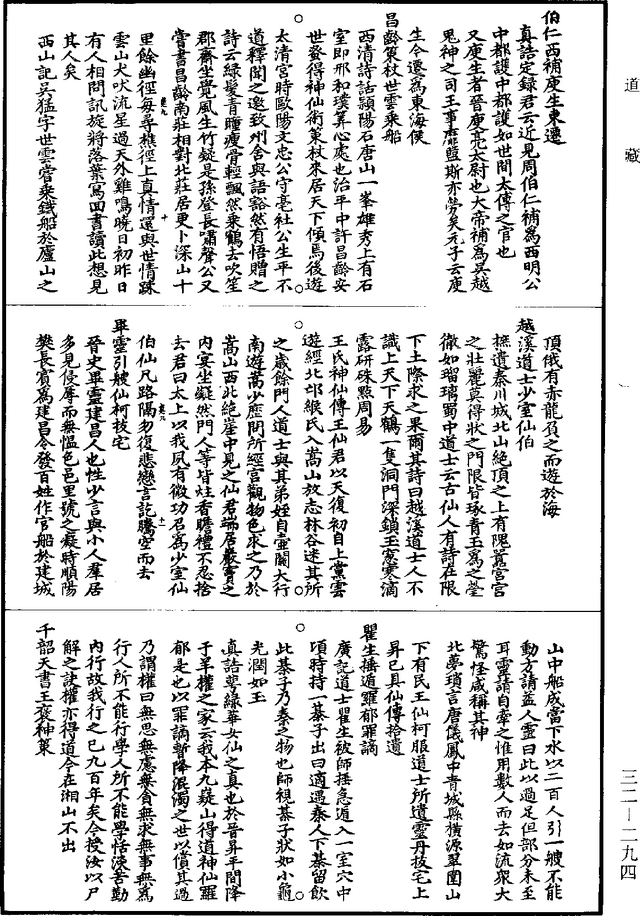 道藏
伯仁西補庾生東遷
真誥定錄君云近見周伯仁補為西明公
中都護中都護如世間太傅之官也
又庾生者晉庾亮太尉也大帝補為吳越
鬼神之司王事靡盬斯亦勞矣元子云庾
生今遷為東海侯
昌齡策杖世雲乘船
西清詩話潁陽石唐山一峯雄秀上有石
室即邢和璞筭心處也治平中許昌齡安
世登得神仙術策杖來居天下傾焉後遊
太清宮時歐陽文忠公守亳社公生平不
道釋聞之邀致州舍與語豁然有悟贈之
詩云綠髮青瞳瘦骨輕飄然乘鶴去吹笙
郡齋坐覺風生竹疑是孫登長嘯聲公又
嘗書昌齡南莊相對北莊居更卜深山十
里餘幽徑每尋樵徑上真情還與世情踈
雲山犬吠流星過天外雞鳴曉日初昨日
有人相問訊旋將落葉寫回書讀此想見
其人矣
西山記吳猛字世雲嘗乘鐵船於廬山之
頂俄有赤龍負之而遊於海
越溪道士少室仙伯
摭遺秦川城北山絕頂之上有隗囂宮宮
之壯麗莫得狀之門限皆琢青玉為之瑩
徹如瑠璃蜀中道士云古仙人有詩在限
下土際求之果爾其詩曰越溪道士人不
識上天下天鶴一隻洞門深鎖玉窻寒滴
露研硃點周易
王氏神仙傳王仙君以天復初自上黨雲
遊經北邙緱氏入嵩山放志林谷迷其所
之歲餘門人道士與其弟姪自壺關大行
南遊嵩少歷問所經宮觀物色求之乃於
嵩山西北絕崖中見之仙君端居巖竇之
內宴坐凝然門人等皆炷香瞻禮不忍捨
去君曰太上以我夙有微功召為少室仙
伯仙凡路隔勿復悲戀言訖騰空而去
畢靈引艘仙柯拔宅
晉史畢靈建昌人也性少言與小人羣居
多見侵辱而無慍色邑里號之癡時順陽
樊長賓為建昌令發百姓作官船於建城
山中船成當下水以二百人引一艘不能
動方請益人靈曰此以過足但部分未至
耳靈請自牽之惟用數人而去如流衆大
驚怪咸稱其神
北夢瑣言唐儀鳳中青城縣橫源翠圍山
下有民王仙柯服道士所遺靈丹拔宅上
昇已具仙傳拾遺
瞿生播遁羅郁罪謫
廣記道士瞿生被師捶急遁入一室穴中
頃時持一棊子出曰適遇秦人下棊留飲
此棊子乃秦之物也師視棊子狀如小龜
光潤如玉
真誥萼綠華女仙之真也於晉昇平間降
于羊權之家云我本九嶷山得道神仙羅
郁是也以罪謫暫降混濁之世以償其過
乃謂權曰無思無慮無貪無求無事無為
行人所不能行學人所不能學恬淡苦勤
內行故我行之已九百年矣今授汝以尸
解之訣權亦得道今在湘山不出
千韶天書王褒神策
三二—二九四